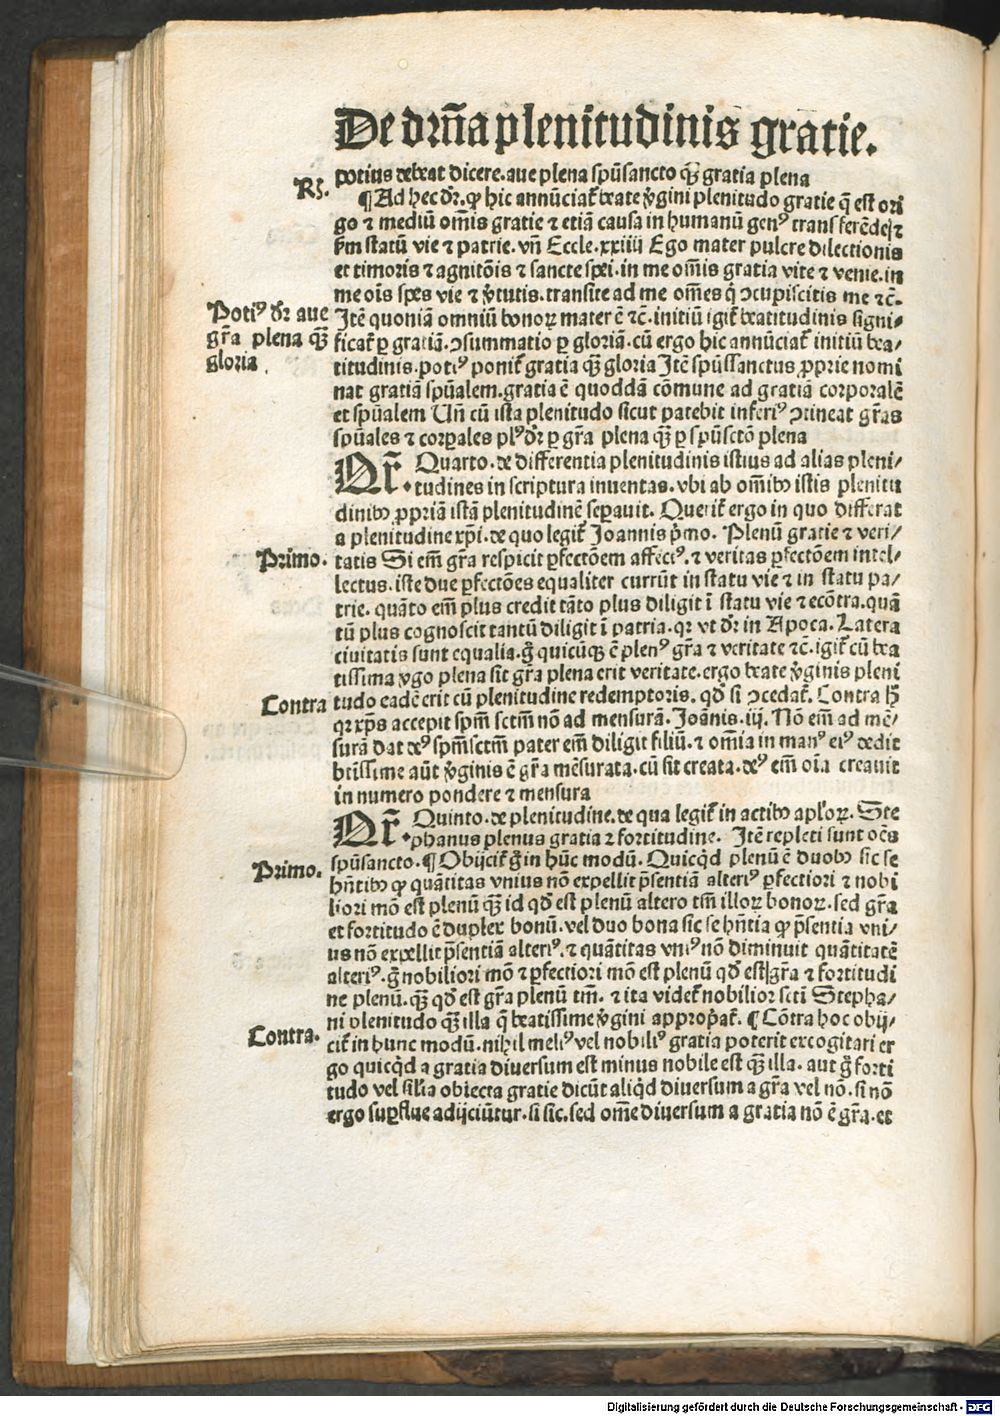 De drn̄a plenitudinis gratie.
potius debeat dicere. aue plena spūsancto qꝫ gratia plena
Rꝰ.
¶ Ad hec dr̄. ꝙ hic annūciat᷑ beate v̓gini plenitudo gratie q̄ est ori
go ⁊ mediū om̄is gratie ⁊ etiā causa in humanū genꝰ transferēdei ⁊
fm statū vie ⁊ patrie. vn̄ Eccle. xxiiij Ego mater pulcre dilectionis
et timoris ⁊ agnitōis ⁊ sancte spei. in me om̄is gratia vite ⁊ venie. in
me oīs spes vie ⁊ v̓tutis. transite ad me om̄es q̇ ꝯcupiscitis me ⁊c̄.
Potiꝰ dr̄ aue
gr̄a plena qꝫ
gloria
Itē quoniā omniū bonoꝝ mater ē ⁊c̄. initiū igit᷑ beatitudinis signi⸗
ficat᷑ ꝑ gratiā. ꝯsummatio ꝑ gloriā. cū ergo hic annūciat᷑ initiū bea⸗
titudinis. potiꝰ ponit᷑ gratia qꝫ gloria Itē spūssanctus ꝓprie nomi
nat gratiā spūalem. gratia ē quoddā cōmune ad gratiā corporalē
et spūalem Un̄ cū ista plenitudo sicut patebit inferiꝰ ꝯtineat gr̄as
spūales ⁊ corꝑales plꝰ dr̄ ꝑ gr̄a plena qꝫ ꝑ spūsctō plena
Qr̄. Quarto. de differentia plenitudinis istius ad alias pleni⸗
tudines in scriptura inuentas. vbi ab om̄ibꝰ istis plenitu
dinibꝰ ꝓpriā istā plenitudinē seꝑauit. Querit᷑ ergo in quo differat
a plenitudine xp̄i. de quo legit᷑ Joannis p̓mo. Plenū gratie ⁊ veri⸗
Primo.
tatis Si em̄ gr̄a respicit ꝑfectōem affectꝰ. ⁊ veritas ꝑfectōem intel⸗
lectus. iste due ꝑfectōes equaliter currūt in statu vie ⁊ in statu pa⸗
trie. quāto em̄ plus credit tāto plus diligit ī statu vie ⁊ ecōtra. quā
tū plus cognoscit tantū diligit ī patria. qꝛ vt dr̄ in Apoca. Latera
ciuitatis sunt equalia. g̊ quicūqꝫ ē plenꝰ gr̄a ⁊ veritate ⁊c̄. igit᷑ cū bea
tissima v̓go plena sit gr̄a plena erit veritate. ergo beate v̓ginis pleni
Contra
tudo eadē erit cū plenitudine redemptoris. qd̓ si ꝯcedat᷑. Contra ꝧ
qꝛ xp̄s accepit spm̄ sctm̄ nō ad mensurā. Joānis. iij. Nō em̄ ad mē⸗
surā dat deꝰ spm̄sctm̄ pater em̄ diligit filiū. ⁊ om̄ia in manꝰ eiꝰ dedit
btīssime aūt v̓ginis ē gr̄a mēsurata. cū sit creata. deꝰ em̄ oīa creauit
in numero pondere ⁊ mensura
Qr̄. Quinto. de plenitudine. de qua legit᷑ in actibꝰ apl̓oꝝ. Ste
phanus plenus gratia ⁊ fortitudine. Itē repleti sunt oēs
Primo.
spūsancto. ¶ Obijcit᷑ g̊ in hūc modū. Quicqd̓ plenū ē duobꝰ sic se
hn̄tibꝰ ꝙ quātitas vnius nō expellit p̄sentiā alteriꝰ ꝑfectiori ⁊ nobi
liori mō est plenū qꝫ id qd̓ est plenū altero tm̄ illoꝝ bonoꝝ. sed gr̄a
et fortitudo ē duplex bonū. vel duo bona sic se hn̄tia ꝙ p̄sentia vni⸗
us nō expellit p̄sentiā alteriꝰ. ⁊ quātitas vniꝰ nō diminuit quātitatē
alteriꝰ. g̊ nobiliori mō ⁊ ꝑfectiori mō est plenū qd̓ est gr̄a ⁊ fortitudi
ne plenū. qꝫ qd̓ est gr̄a plenū tm̄. ⁊ ita videt᷑ nobilior scti Stepha⸗
ni plenitudo qꝫ illa q̄ beatissime v̓gini appropat᷑. ¶ Cōtra hoc obij⸗
Contra.
cit᷑ in hunc modū. nihil meliꝰ vel nobiliꝰ gratia poterit excogitari er
go quicqd̓ a gratia diuersum est minus nobile est qꝫ illa. aut g̊ forti
tudo vel silia obiecta gratie dicūt aliqd̓ diuersum a gr̄a vel nō. si nō
ergo suꝑflue adijciūtur. si sic. sed om̄e diuersum a gratia nō ē gr̄a. et
Digitalisierung gefördert durch die Deutsche Forschungsgemeinschaft - DFG